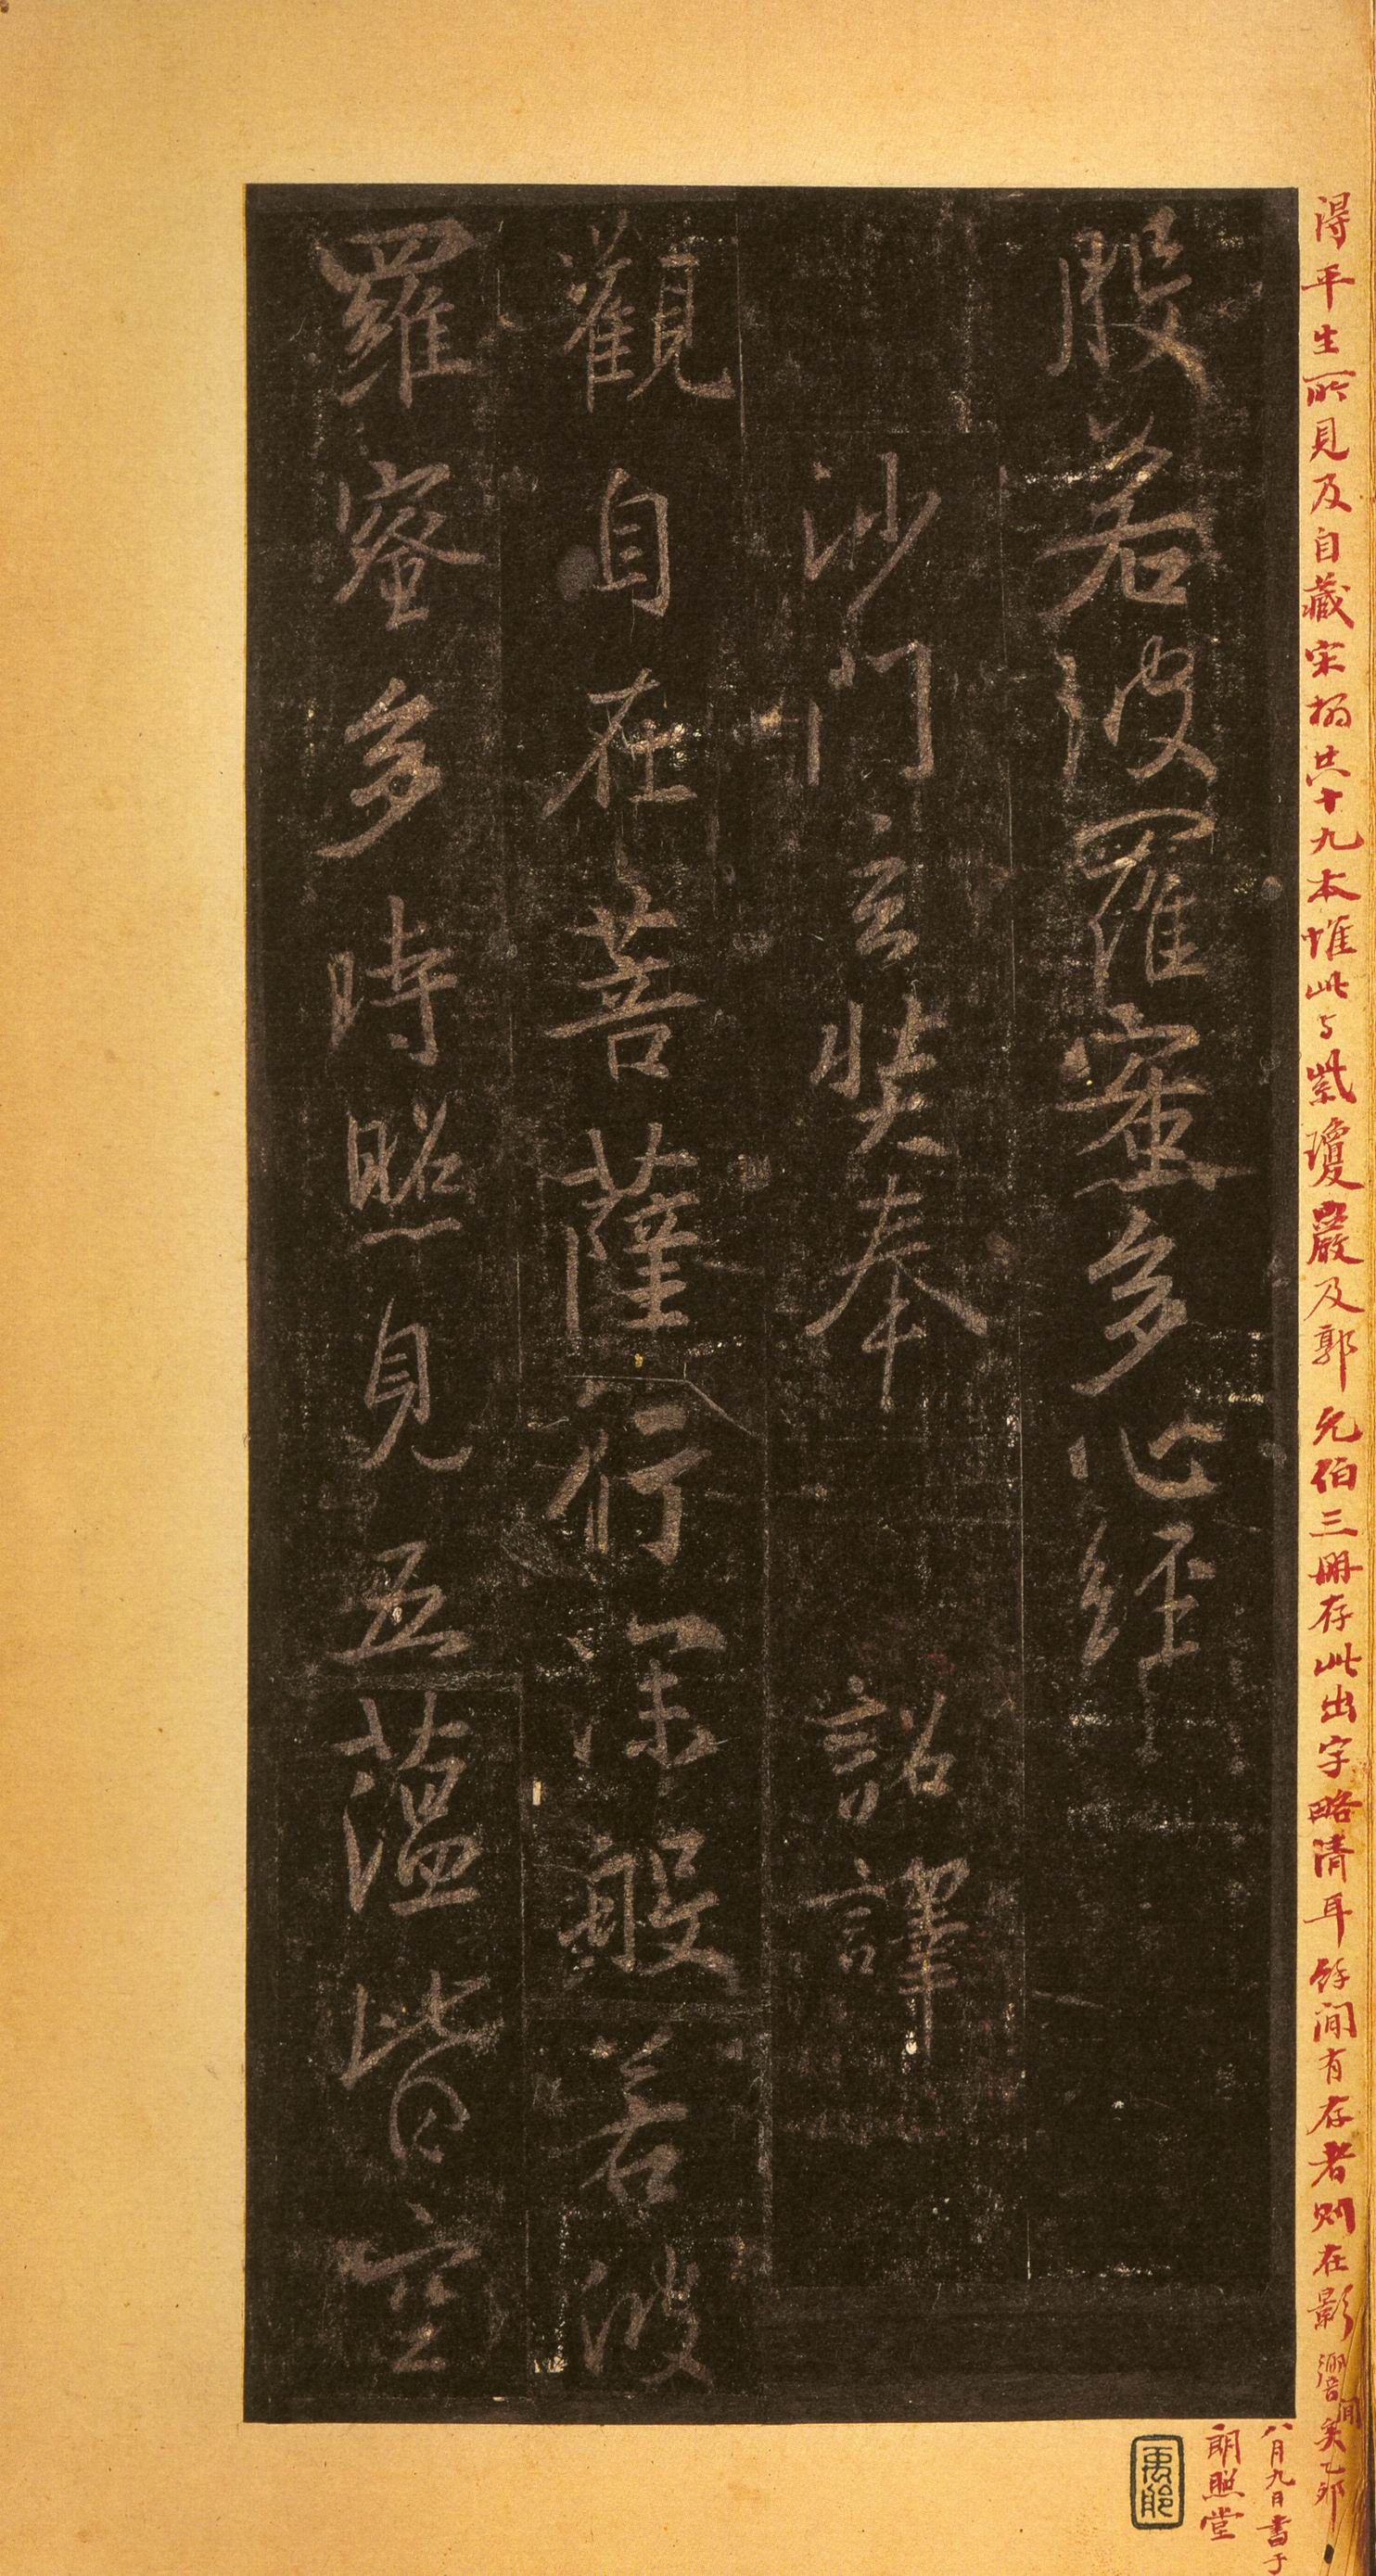 得平生所見及自藏宋搨共十九本惟此与紫瓊嚴及郭允伯三冊存此出字略清耳餘間有存者則在影響間矣乙卯
八月九日書于
朗照堂
般若波羅蜜多心經
沙門玄奘奉 詔譯
觀自在菩薩行深般若波
羅蜜多時照見五蘊皆空